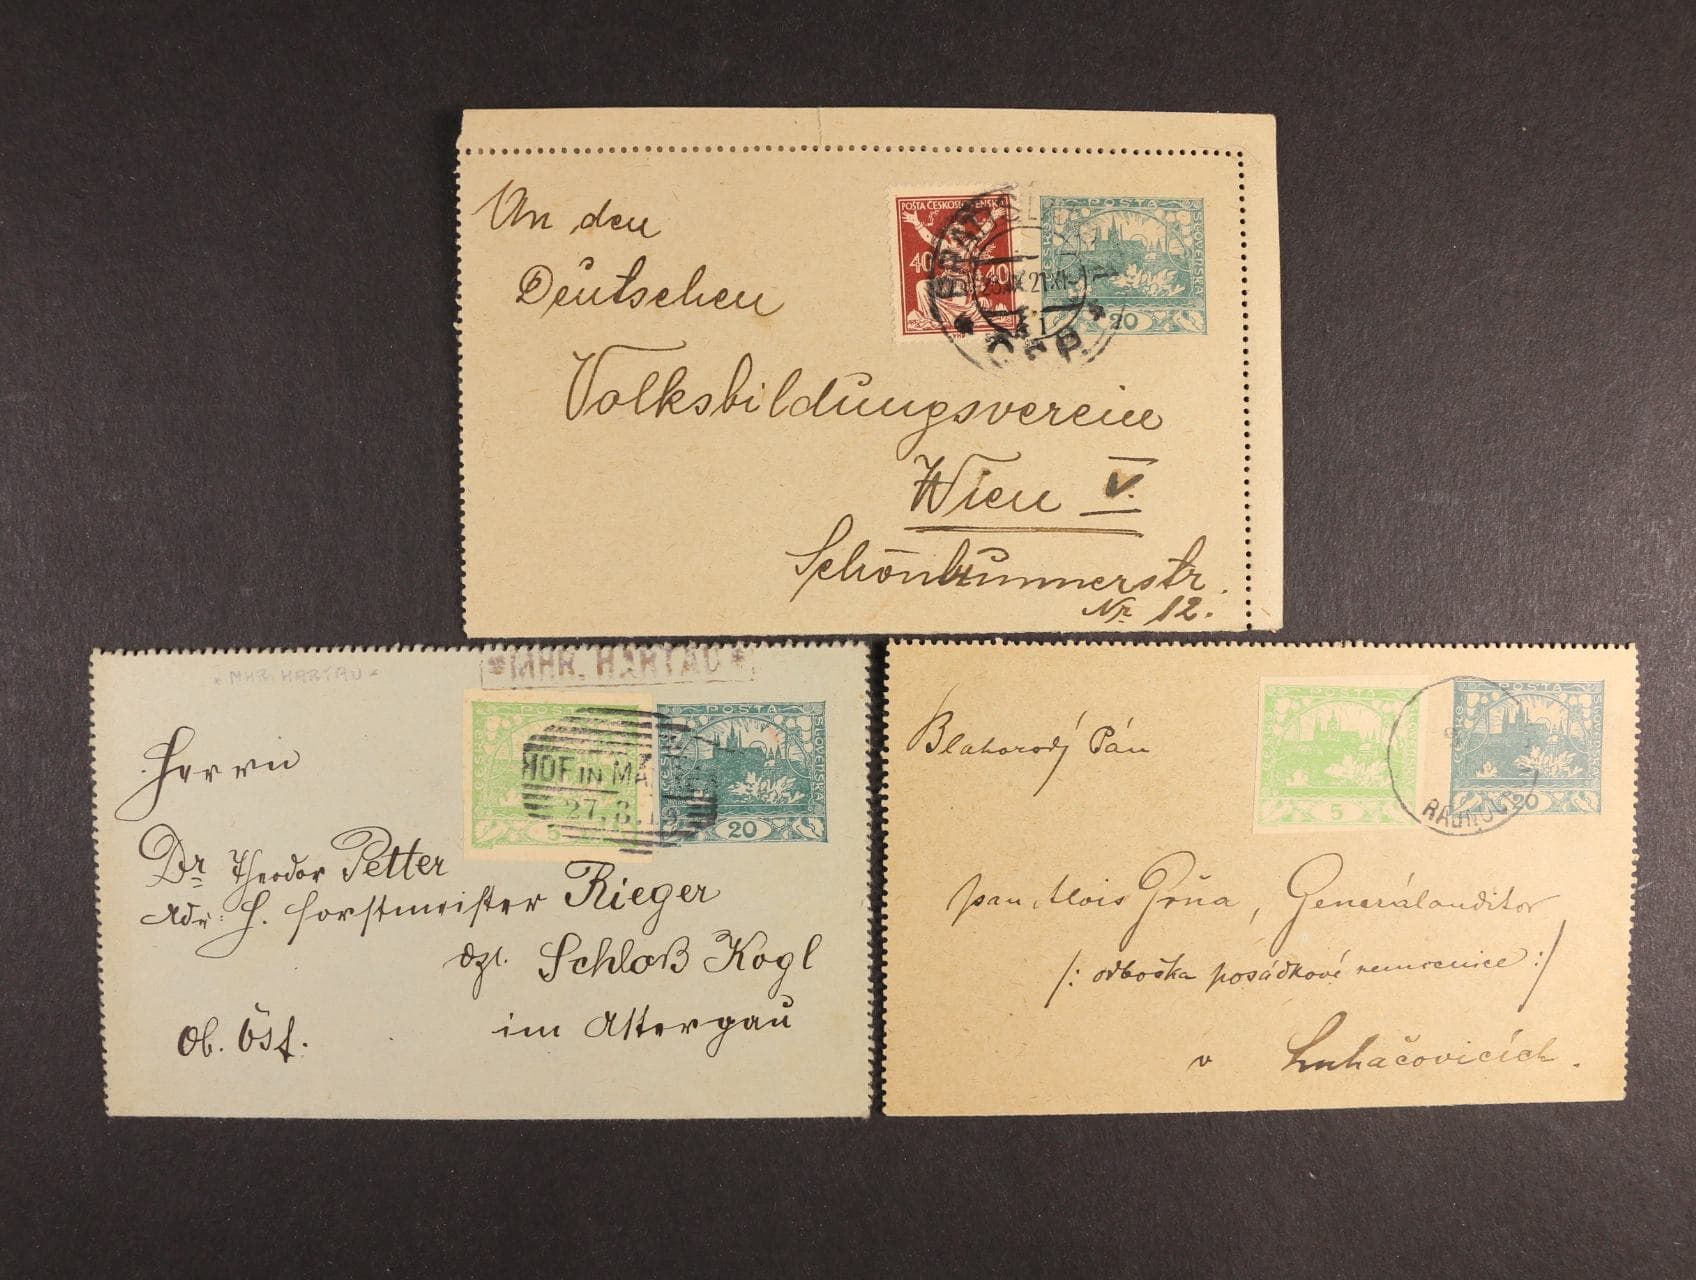 An den
Deutschen
Volksbildungsverein
Wien V.
Schönbrunnerstr.
Nr. 12.
POŠTA ČESKOSLOVENSKÁ
40 40
POŠTA
ČESKO
SLOVENSKÁ
20
*MHR. HARTAU*
*MHR. HARTAU*
POŠTA
ČESKO
5
HOF IN MÄ
27.8.19
POŠTA
SLOVENSKÁ
20
Herrn
Dr Theodor Petter
Adr: H. Forstmeister Rieger
dzt. Schloß Kogl
im Attergau
Ob. Öst.
POŠTA
ČESKO
SLOVENSKÁ
5
POŠTA
ČESKO
SLOVENSKÁ
20
Blahorodý Pán
pan Alois Gřůa, Generálauditor
/: odbočka posádkové nemocnice :/
v Luhačovicích.